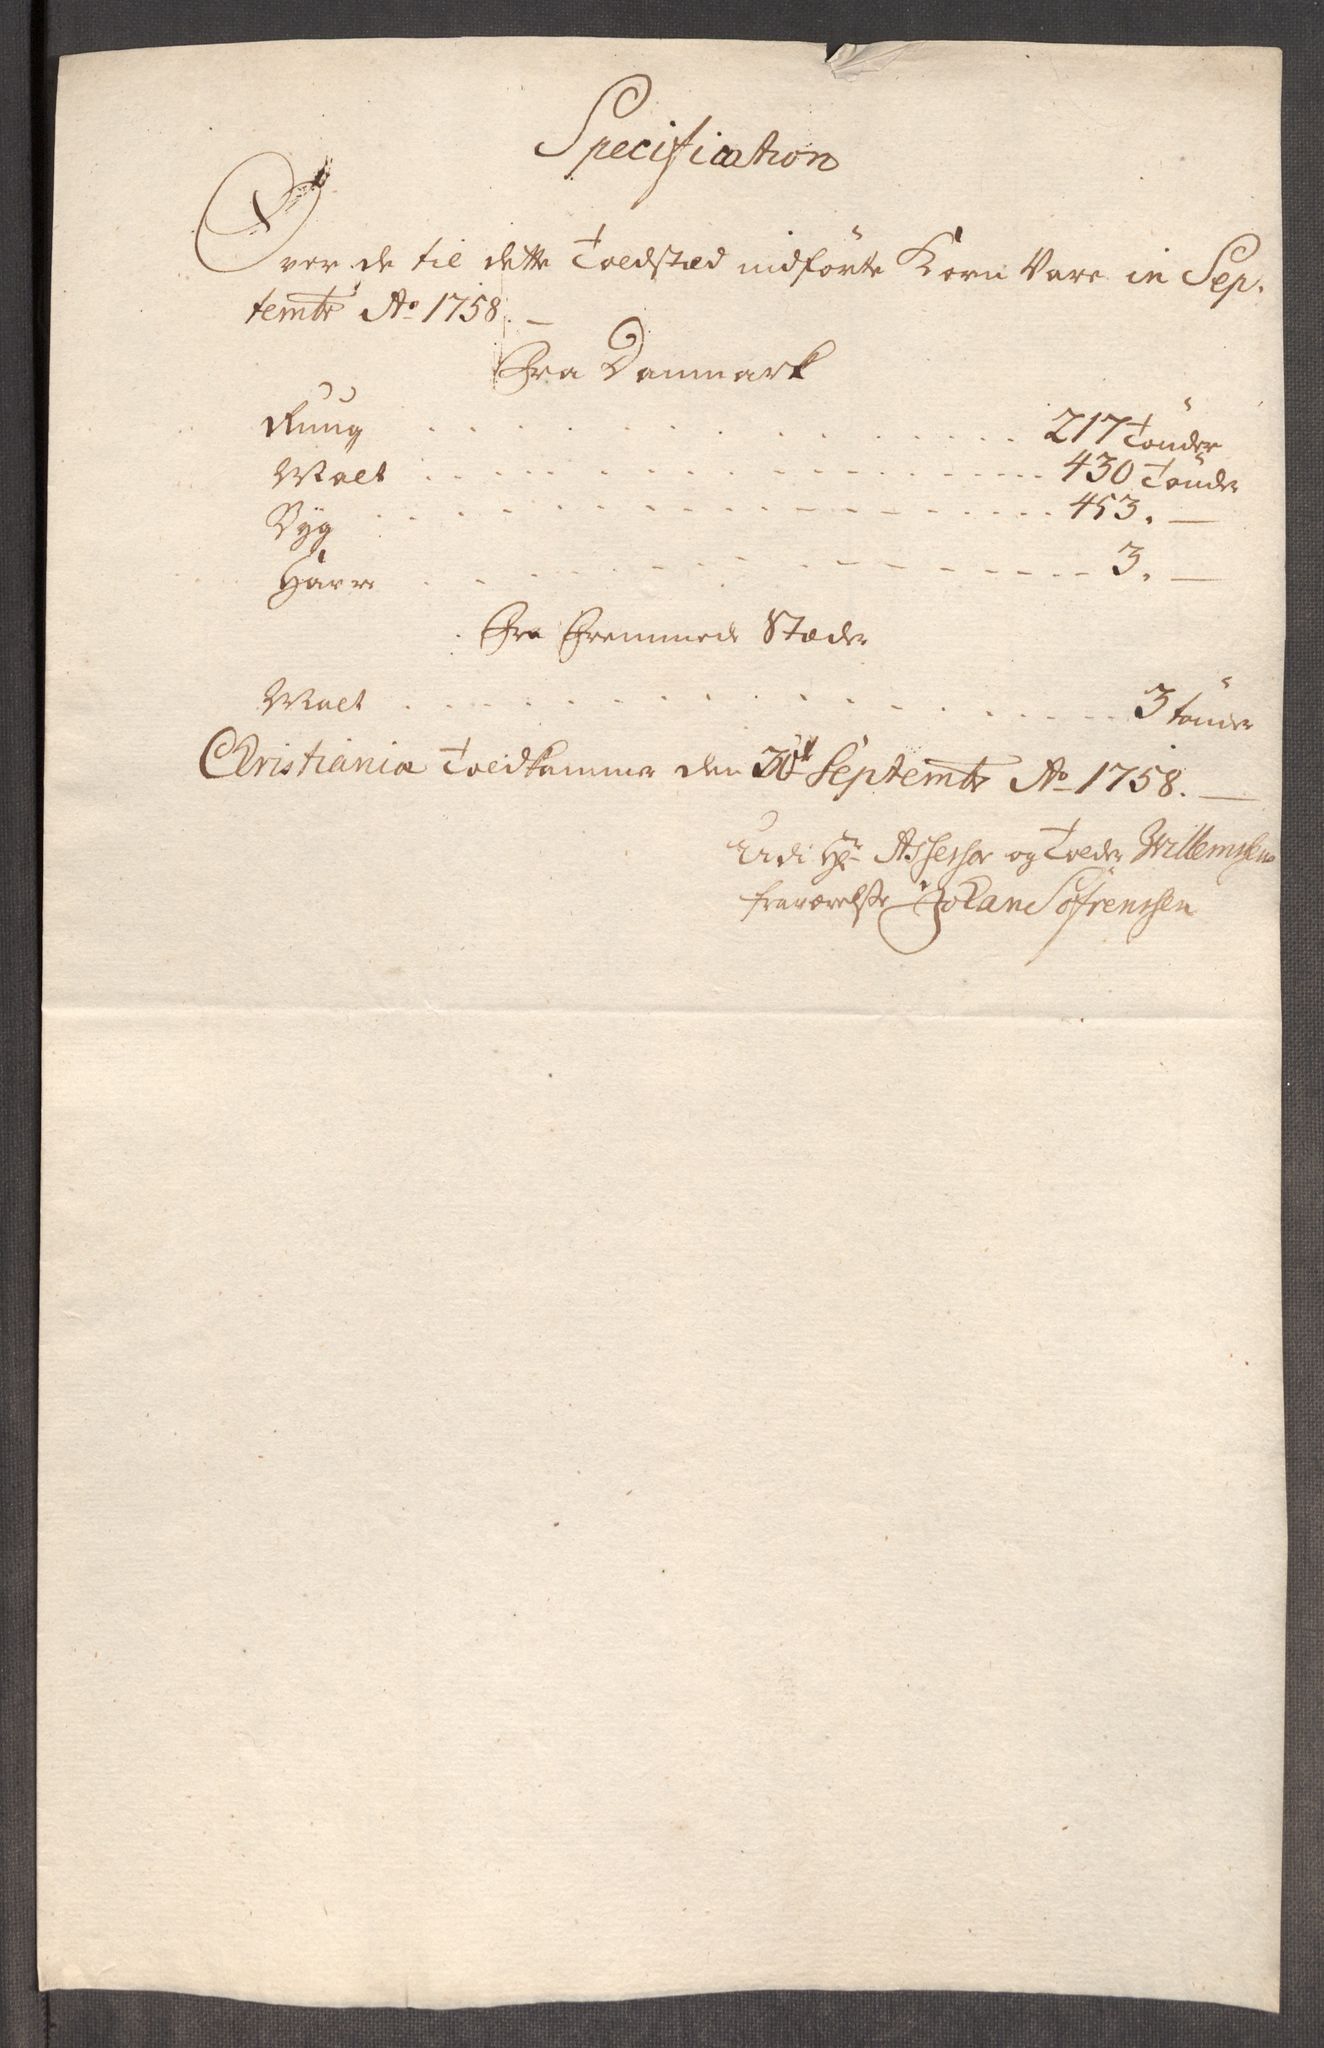 Specification
Over de til dette Toldstæd indförte Korn Vare in Sep-
tembr Ao 1758. —
Fra Danmark
Ruug . . . . . . . . . . 217 Tönder
Malt . . . . . . . . . . 430 Tönder
Byg . . . . . . . . . . 453. —
Havre . . . . . . . . . . 3. —
Fra Fremmede Stæder
Malt . . . . . . . . . . 3 tönder
Christiania Toldkammer den 30t Septembr Ao 1758. —
Udi Hr Assessor og Tolder Willemsens
fraværelse Johan Söfrenssen